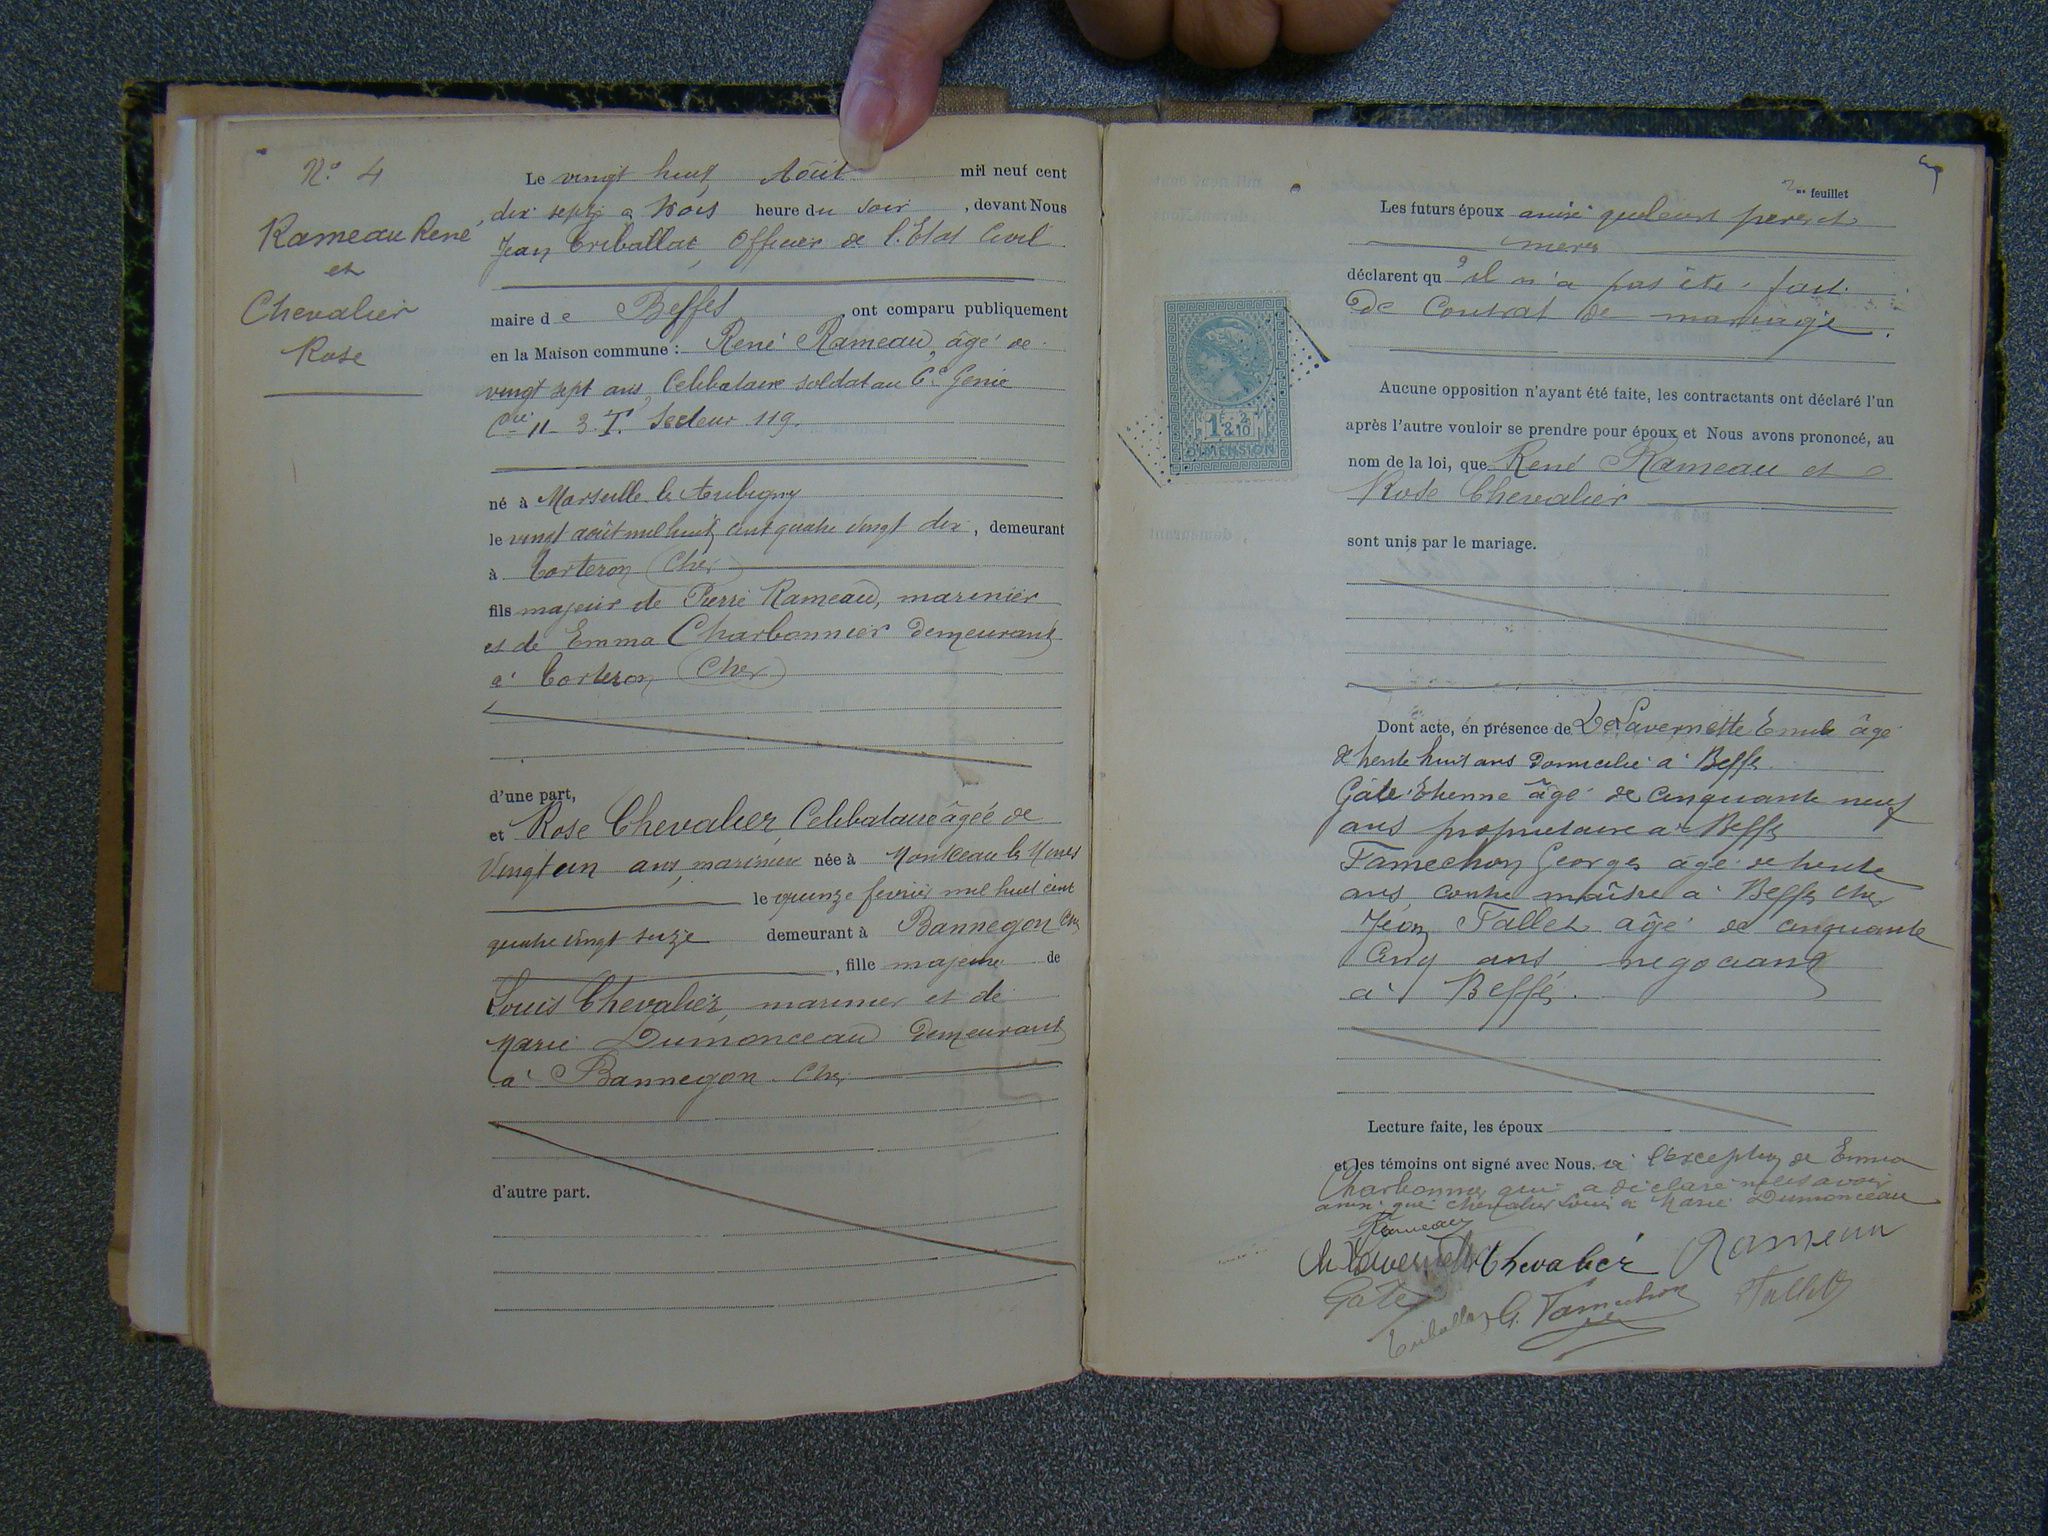 N.° 4
Rameau René
et
Chevalier
Rose
Le vingt huit Août mil neuf cent
dix sept à trois heure du soir , devant Nous
Jean Triballat, Officier de l'Etat Civil
maire de Beffes ont comparu publiquement
en la Maison commune : René Rameau, âgé de
vingt sept ans, Celibataire soldat au 6e Génie
Cie 11 3. T. Secteur 119.
né à Marseille les Aubigny
le vingt août mil huit cent quatre vingt dix , demeurant
à Torteron (Cher)
fils majeur de Pierre Rameau, marinier
et de Emma Charbonnier demeurant
à Torteron (Cher)
d'une part,
et Rose Chevalier, Celibataire âgée de
Vingt un ans, marinière née à Montceau les Mines
le quinze fevrier mil huit cent
quatre vingt seize demeurant à Bannegon Cher
, fille majeure de
Louis Chevalier, marinier et de
Marie Dumonceau demeurant
à Bannegon Cher
d'autre part.
2me feuillet
Les futurs époux ainsi que leurs pères et
mères
déclarent qu'il n'a pas été fait
de Contrat de mariage.
Aucune opposition n'ayant été faite, les contractants ont déclaré l'un
après l'autre vouloir se prendre pour époux et Nous avons prononcé, au
nom de la loi, que René Rameau et
Rose Chevalier
sont unis par le mariage.
1F & 2/10
DIMENSION
Dont acte, en présence de De Lavernette Emile âgé
de trente huit ans domicilié à Beffes.
Gâte Etienne âgé de cinquante neuf
ans propriétaire à Beffes
Famechon Georges âgé de trente
ans, contre maître à Beffes Cher
Jean Tallet âgé de cinquante
cinq ans négociant
à Beffes.
Lecture faite, les époux
et les témoins ont signé avec Nous. à l'exception de Emma
Charbonnier qui a déclaré ne savoir
ainsi que Chevalier Louis et Marie Dumonceau
Rameau
Chevalier Rameau
Gâte
Triballat G. Famechon Tallet